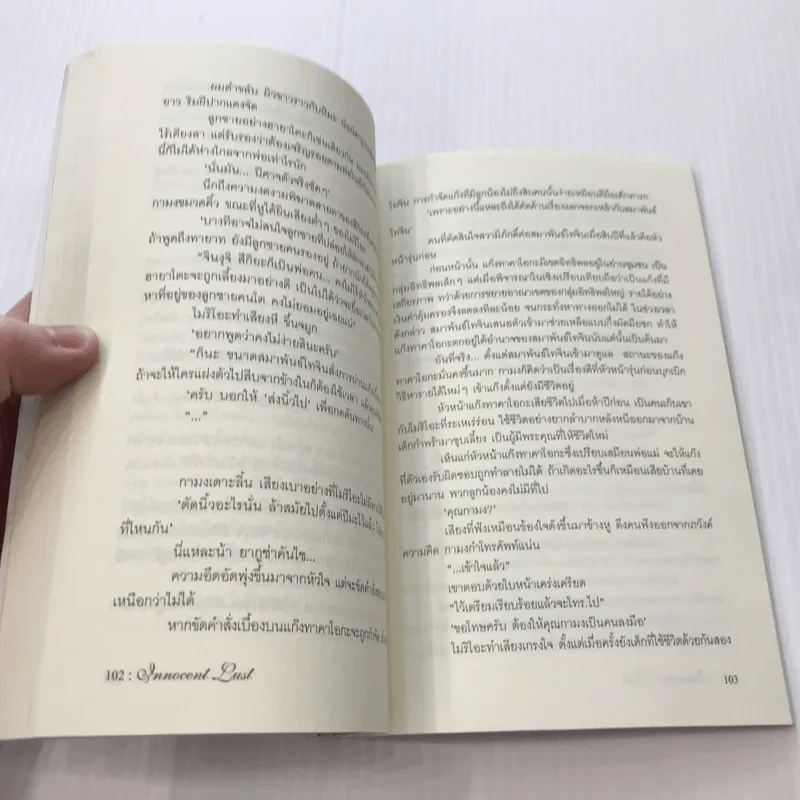 ผมดำขลับ ผิวขาวราวกับหิมะ
ยาว ริมฝีปากแดงจัด
ลูกชายอย่างฮายาโตะก็เช่นเดียวกัน
ไร้เดียงสา แต่รับรองว่าต้องเจริญรอยตามพ่อ
นี่ก็ไม่ได้ห่างไกลจากพ่อเท่าไรนัก
'นั่นมัน... ปีศาจตัวจริงชัดๆ'
นึกถึงความงดงามพิฆาตสายตาของ
กามงขมวดคิ้ว ขณะที่หูได้ยินเสียงต่ำๆ
'บางทีอาจไม่สนใจลูกชายที่ปล่อยให้
ถ้าพูดถึงทายาท ยังมีลูกชายคนรองอยู่
"จินงูจิ สึกิยะก็เป็นพ่อคน...
ฮายาโตะจะถูกเลี้ยงมาอย่างดี เป็นไปได้ว่า
หาที่อยู่ของลูกชายคนโต คงไม่ยอมอยู่เฉยแน่'
โมริโอะทำเสียงหึ ขึ้นจมูก
'อยากพูดว่าคงไม่ง่ายสินะครับ'
"ก็นะ ขนาดสมาพันธ์โทจินสั่งการผ่าน
ถ้าจะให้ใครแฝงตัวไปสืบจากข้างในก็ต้องใช้เวลา
'ครับ บอกให้ 'ส่งนิ้วไป' เพื่อกดดันทางนั้น'
"..."
กามงเดาะลิ้น เสียงเบาอย่างที่โมริโอะไม่
'ตัดนิ้วอะไรนั่น ล้าสมัยไปตั้งแต่ปีมะโว้แล้ว
ที่ไหนกัน'
นี่แหละน้า ยากูซ่าคันไซ...
ความอึดอัดพุ่งขึ้นมาจากหัวใจ แต่จะขัดคำสั่ง
เหนือกว่าไม่ได้
หากขัดคำสั่งเบื้องบนแก๊งทาคาโอกะจะถูกกำจัด
102 : Innocent Lust
โทจิน การกำจัดแก๊งที่มีลูกน้องไม่ถึงสิบคนนั้นง่ายเหมือนดีมือเด็กทารก
'เพราะอย่างนี้แหละถึงได้คัดค้านเรื่องแลกจอกเหล้ากับสมาพันธ์
โทจิน'
คนที่ตัดสินใจสวามิภักดิ์ต่อสมาพันธ์โทจินเมื่อสิบปีที่แล้วคือหัว
หน้ารุ่นก่อน
ก่อนหน้านั้น แก๊งทาคาโอกะมีเขตอิทธิพลอยู่ในย่านชุมชน เป็น
กลุ่มอิทธิพลเล็กๆ แต่เมื่อพิจารณาในเชิงเปรียบเทียบถือว่าเป็นแก๊งที่มี
เสถียรภาพ ทว่าด้วยการขยายอาณาเขตของกลุ่มอิทธิพลใหญ่ รายได้อย่าง
เงินค่าคุ้มครองจึงลดลงทีละน้อย จนกระทั่งหาทางออกไม่ได้ ในช่วงเวลา
ดังกล่าว สมาพันธ์โทจินเสนอตัวเข้ามาช่วยเหลือแบบกึ่งมัดมือชก ทำให้
แก๊งทาคาโอกะตกอยู่ใต้อำนาจของสมาพันธ์โทจินนับแต่นั้นเป็นต้นมา
อันที่จริง... ตั้งแต่สมาพันธ์โทจินเข้ามาดูแล สถานะของแก๊ง
ทาคาโอกะมั่นคงขึ้นมาก กามงก็คิดว่าเป็นเรื่องดีที่หัวหน้ารุ่นก่อนบุกเบิก
วิธีหารายได้ใหม่ๆ เข้าแก๊งตั้งแต่ยังมีชีวิตอยู่
หัวหน้าแก๊งทาคาโอกะเสียชีวิตไปเมื่อห้าปีก่อน เป็นคนเก็บเขา
กับโมริโอะที่ระเหเร่ร่อน ใช้ชีวิตอย่างยากลำบากหลังหนีออกมาจากบ้าน
เด็กกำพร้ามาชุบเลี้ยง เป็นผู้มีพระคุณที่ให้ชีวิตใหม่
เห็นแก่หัวหน้าแก๊งทาคาโอกะซึ่งเปรียบเสมือนพ่อแม่ จะให้แก๊ง
ที่ตัวเองรับผิดชอบถูกทำลายไม่ได้ ถ้าเกิดอะไรขึ้นก็เหมือนเสียบ้านที่เคย
อยู่มานาน พวกลูกน้องคงไม่มีที่ไป
'คุณกามง?'
เสียงที่ฟังเหมือนข้องใจดังขึ้นมาข้างหู ดึงคนฟังออกจากภวังค์
ความคิด กามงกำโทรศัพท์แน่น
"...เข้าใจแล้ว"
เขาตอบด้วยใบหน้าเคร่งเครียด
"ไว้เตรียมเรียบร้อยแล้วจะโทร.ไป"
'ขอโทษครับ ต้องให้คุณกามงเป็นคนลงมือ'
โมริโอะทำเสียงเกรงใจ ตั้งแต่เมื่อครั้งยังเด็กที่ใช้ชีวิตด้วยกันสอง
103